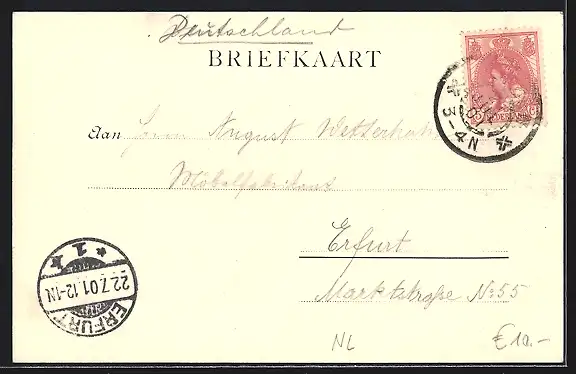 Deutschland
BRIEFKAART
3-4 N
Aan Herrn August Wetterhahn
Möbelfabrikant
Erfurt
Marktstraße No 55
ERFURT
* 1 k
22.7.01.12-1N
NL
€ 10.-